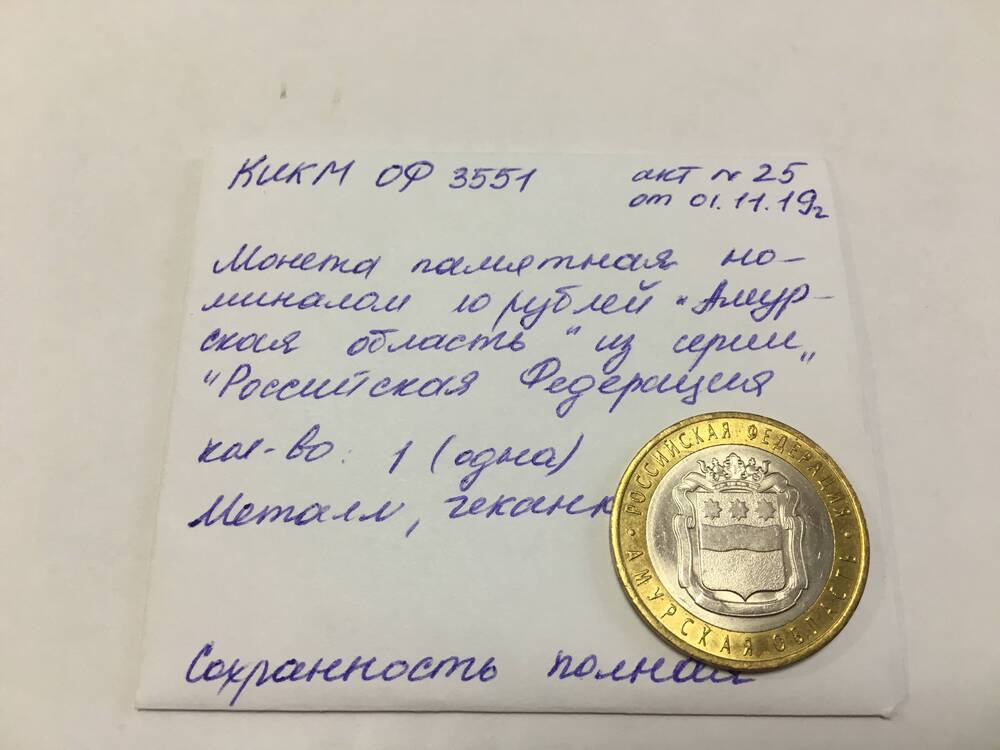 КИКМ ОФ 3551
акт № 25
от 01.11.19г
Монета памятная но-
миналом 10 рублей "Амур-
ская область" из серии
"Российская Федерация"
кол-во: 1 (одна)
Металл, чеканк
Сохранность полная
РОССИЙСКАЯ ФЕДЕРАЦИЯ
АМУРСКАЯ ОБЛАСТЬ